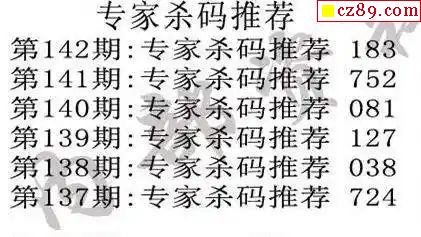 专家杀码推荐
cz89.com
第142期:专家杀码推荐 183
第141期:专家杀码推荐 752
第140期:专家杀码推荐 081
第139期:专家杀码推荐 127
第138期:专家杀码推荐 038
第137期:专家杀码推荐 724